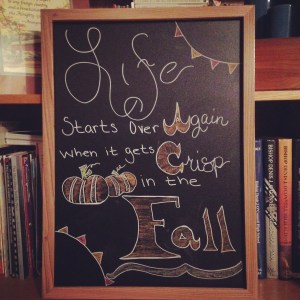 Life
Starts Over Again
when it gets Crisp
in the
Fall